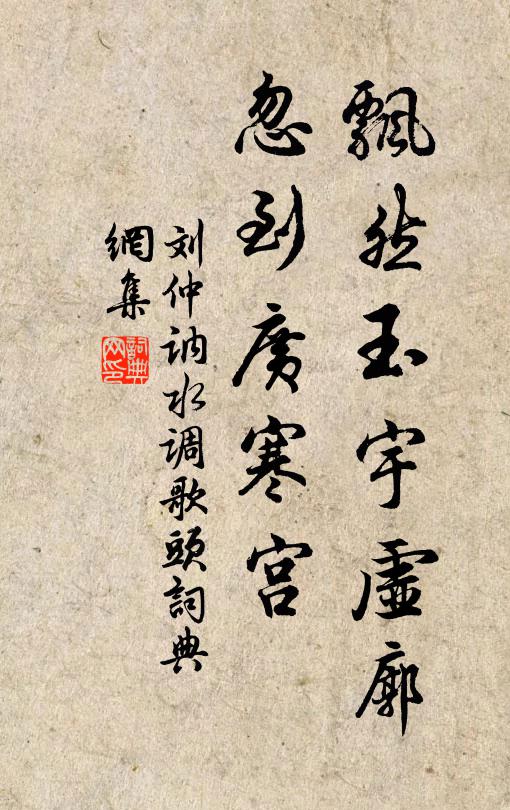 飘然玉宇虚廓
忽到广寒宫
刘仲讷水调歌头詞典
網集
詞典网印